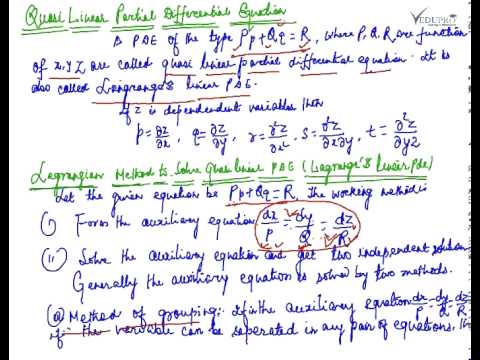 Quasi Linear Partial Differential Equation
VEDUPRO
A PDE of the type Pp + Qq = R, where P, Q, R are function
of x, y, z are called quasi linear partial differential equation. It is
also called Lagrange's linear PDE.
If z is dependent variables then
p = ∂z/∂x, q = ∂z/∂y, r = ∂²z/∂x², s = ∂²z/∂x∂y, t = ∂²z/∂y²
Lagrangian Method to Solve Quasi linear PDE (Lagrange's linear PDE)
Let the given equation be Pp + Qq = R. The working method is
(i) Form the auxiliary equation dx/P = dy/Q = dz/R
(ii) Solve the auxiliary equation and get two independent solution
Generally the auxiliary equation is solved by two methods.
(a) Method of grouping:- If in the auxiliary equation dx/P = dy/Q = dz/R
if the variable can be seperated in any pair of equations,